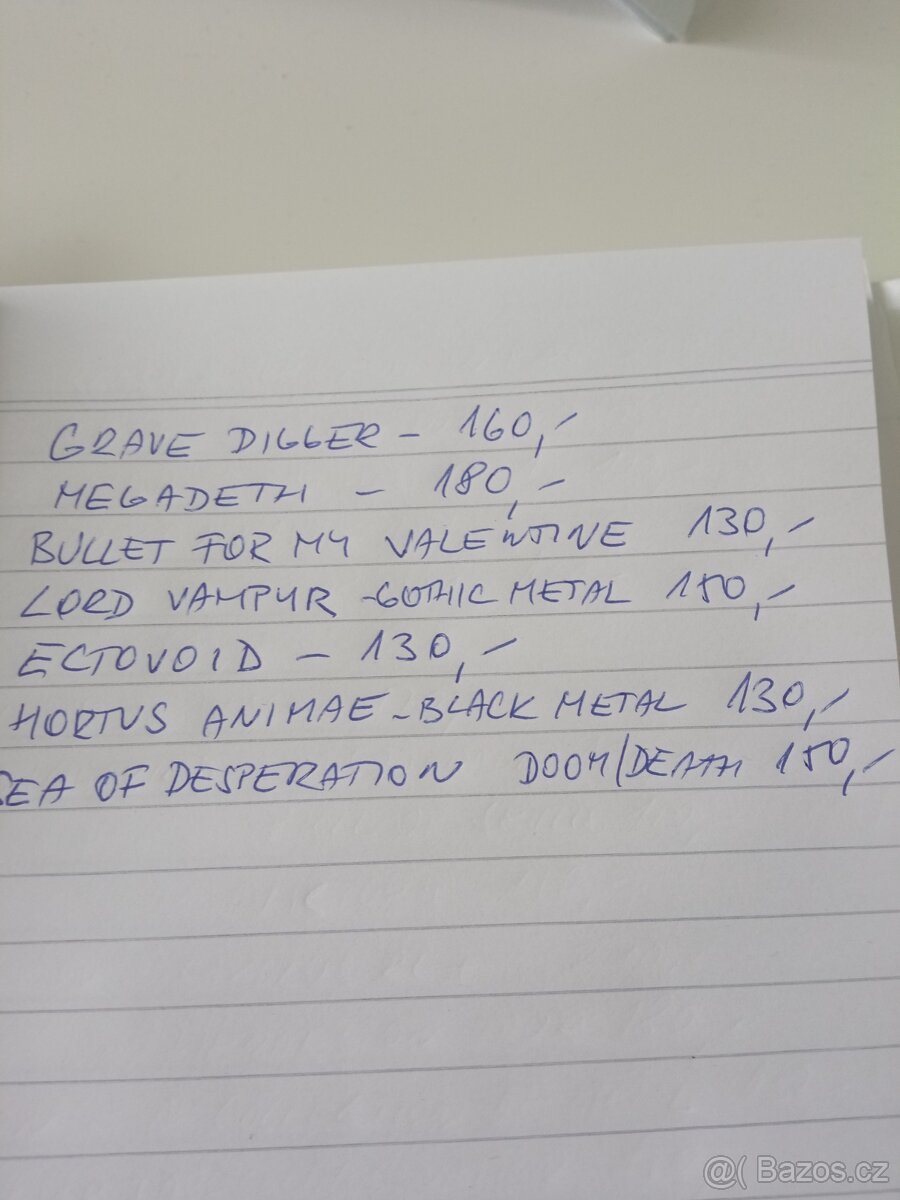 GRAVE DIGGER - 160,-
MEGADETH - 180,-
BULLET FOR MY VALENTINE 130,-
LORD VAMPYR - GOTHIC METAL 150,-
ECTOVOID - 130,-
HORTUS ANIMAE - BLACK METAL 130,-
SEA OF DESPERATION DOOM/DEATH 150,-
@( Bazos.cz